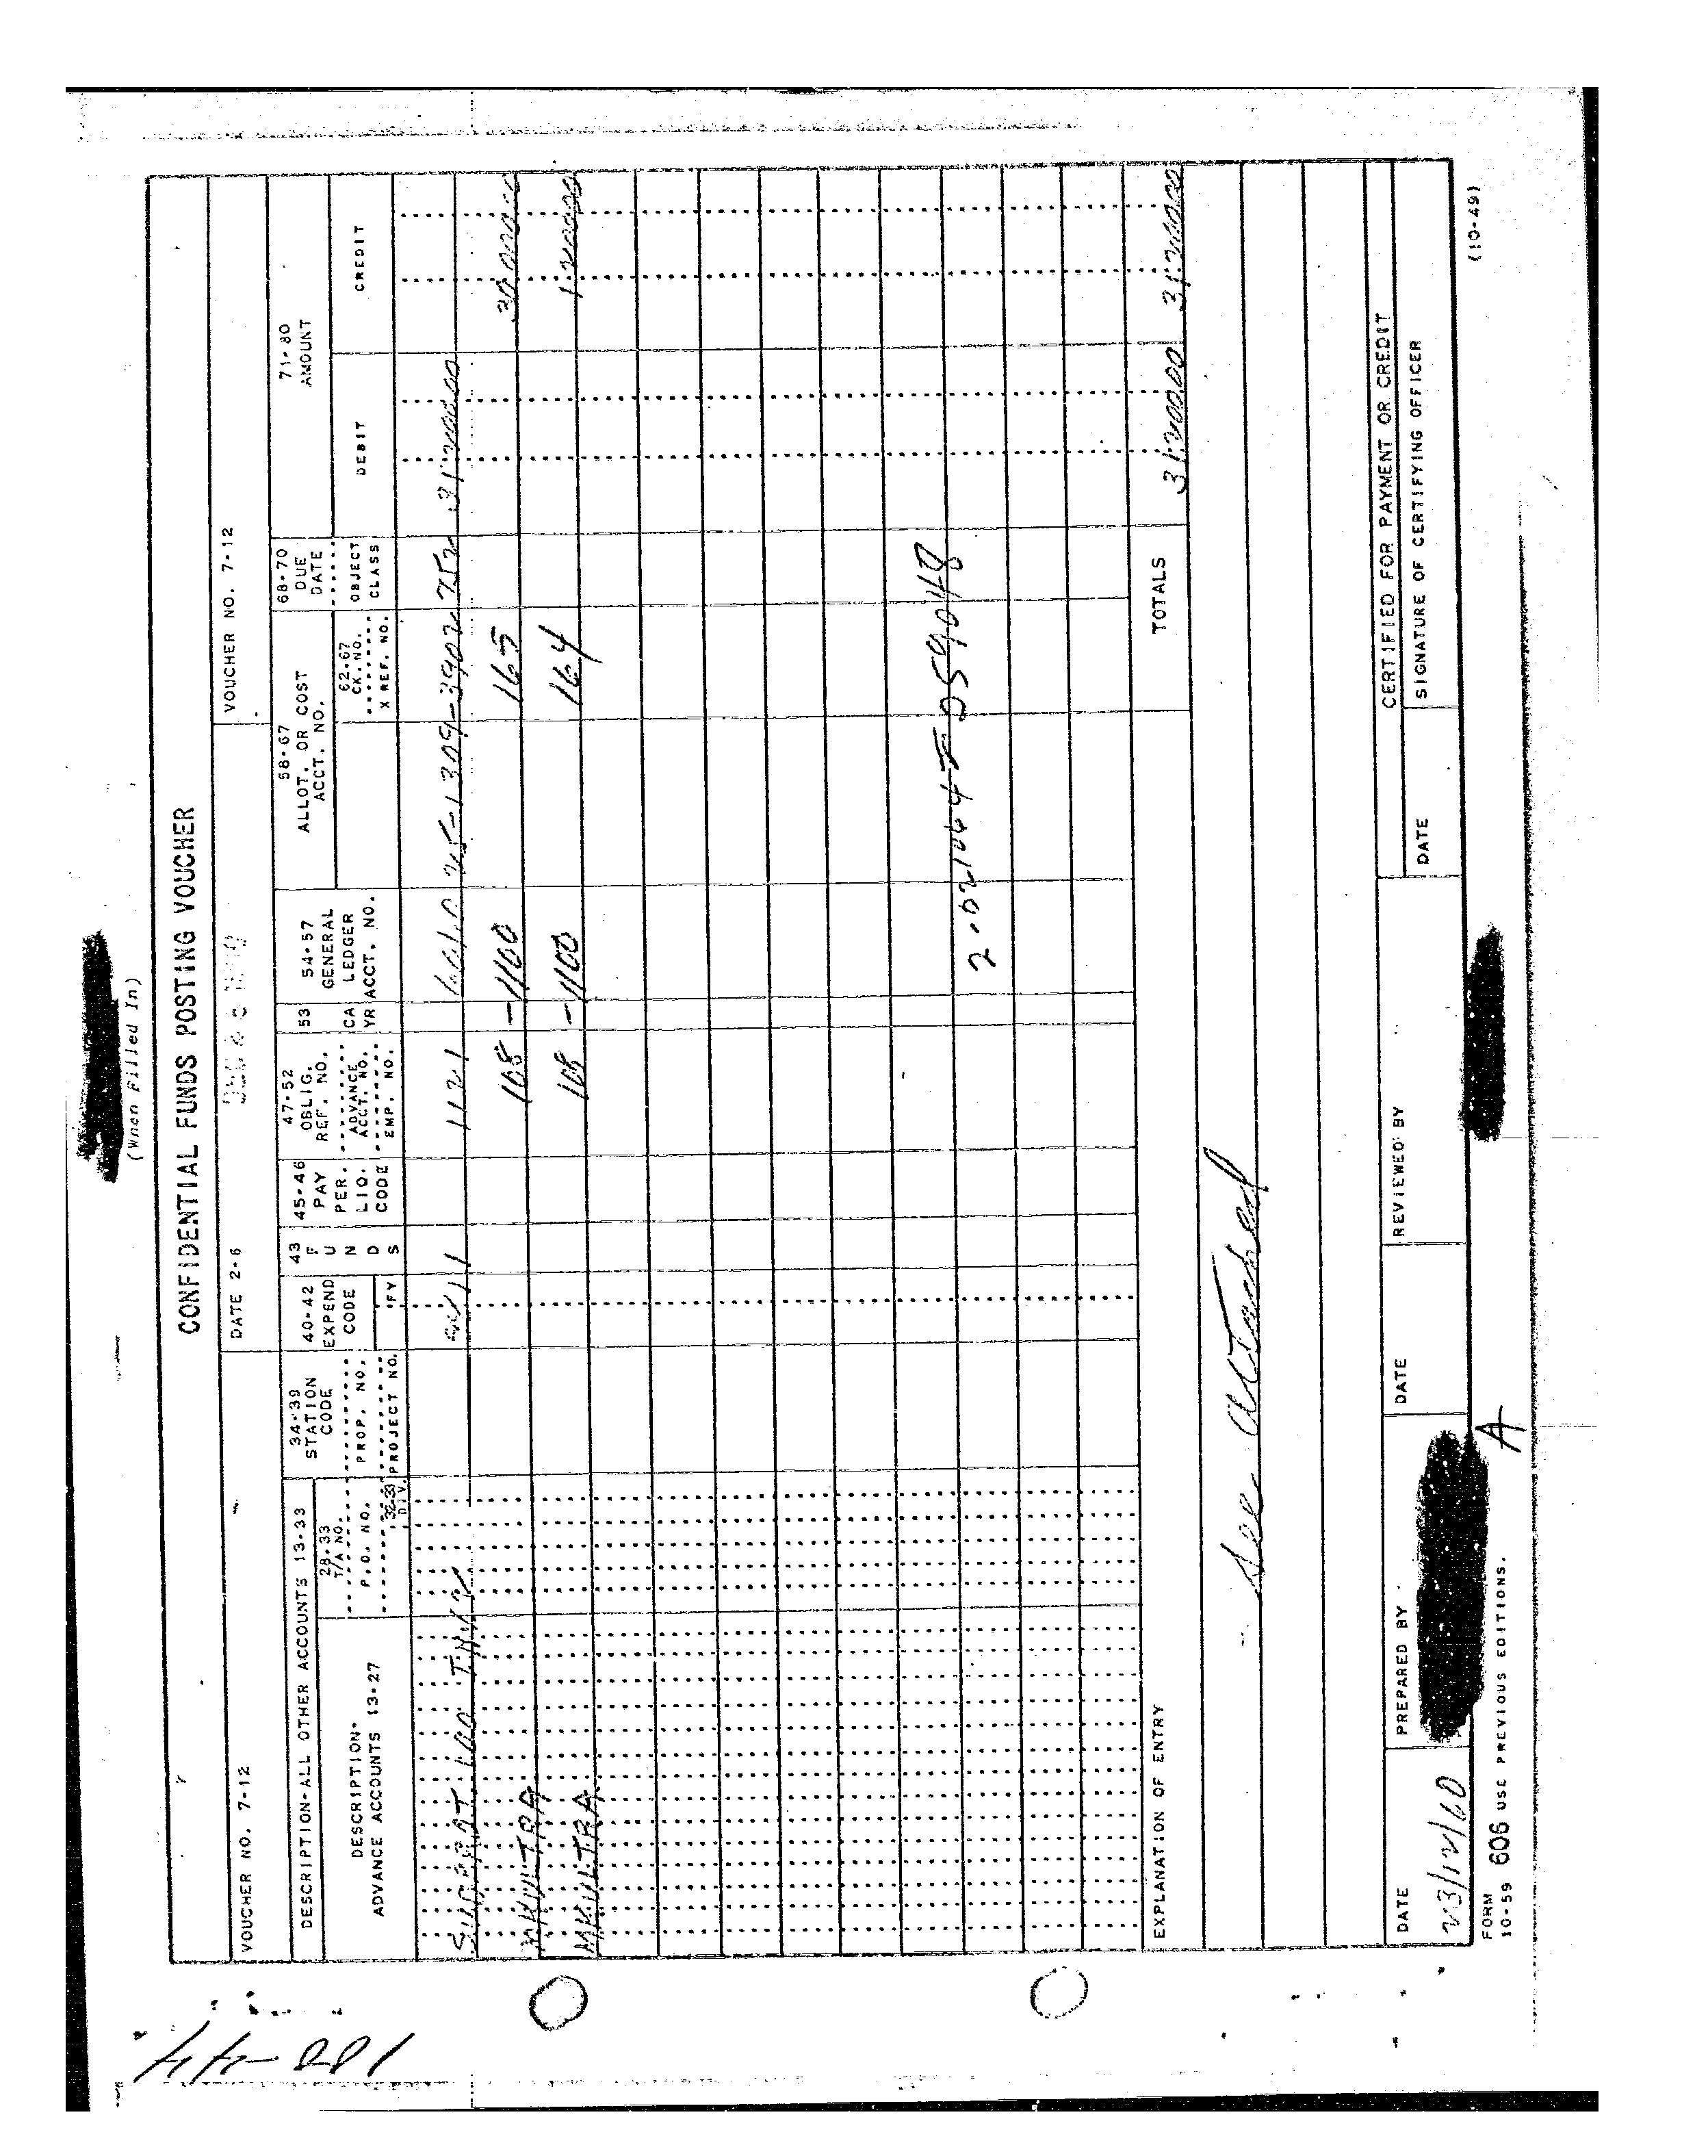 (When Filled In)
CONFIDENTIAL FUNDS POSTING VOUCHER
VOUCHER NO. 7-12 DATE 2-6 VOUCHER NO. 7-12
DESCRIPTION-ALL OTHER ACCOUNTS 13-33
DESCRIPTION-
ADVANCE ACCOUNTS 13-27
28-33
T/A NO.
P.O. NO.
32-33
DIV.
34-39
STATION
CODE
PROP. NO.
PROJECT NO.
40-42
EXPEND
CODE
FY
43
F
U
N
D
S
45-46
PAY
PER.
LIQ.
CODE
47-52
OBLIG.
REF. NO.
ADVANCE
ACCT. NO.
EMP. NO.
53
CA
YR
54-57
GENERAL
LEDGER
ACCT. NO.
58-67
ALLOT. OR COST
ACCT. NO.
62-67
CK. NO.
X REF. NO.
68-70
DUE
DATE
OBJECT
CLASS
71-80
AMOUNT
DEBIT CREDIT
1121 1309-3902
MKULTRA 108 -1100 165
MKULTRA 108 -1100 164
TOTALS 31200.00 31200.00
EXPLANATION OF ENTRY
See Attached
DATE PREPARED BY DATE REVIEWED BY
CERTIFIED FOR PAYMENT OR CREDIT
DATE SIGNATURE OF CERTIFYING OFFICER
23/12/60
FORM
10-59 606 USE PREVIOUS EDITIONS. A (10-49)